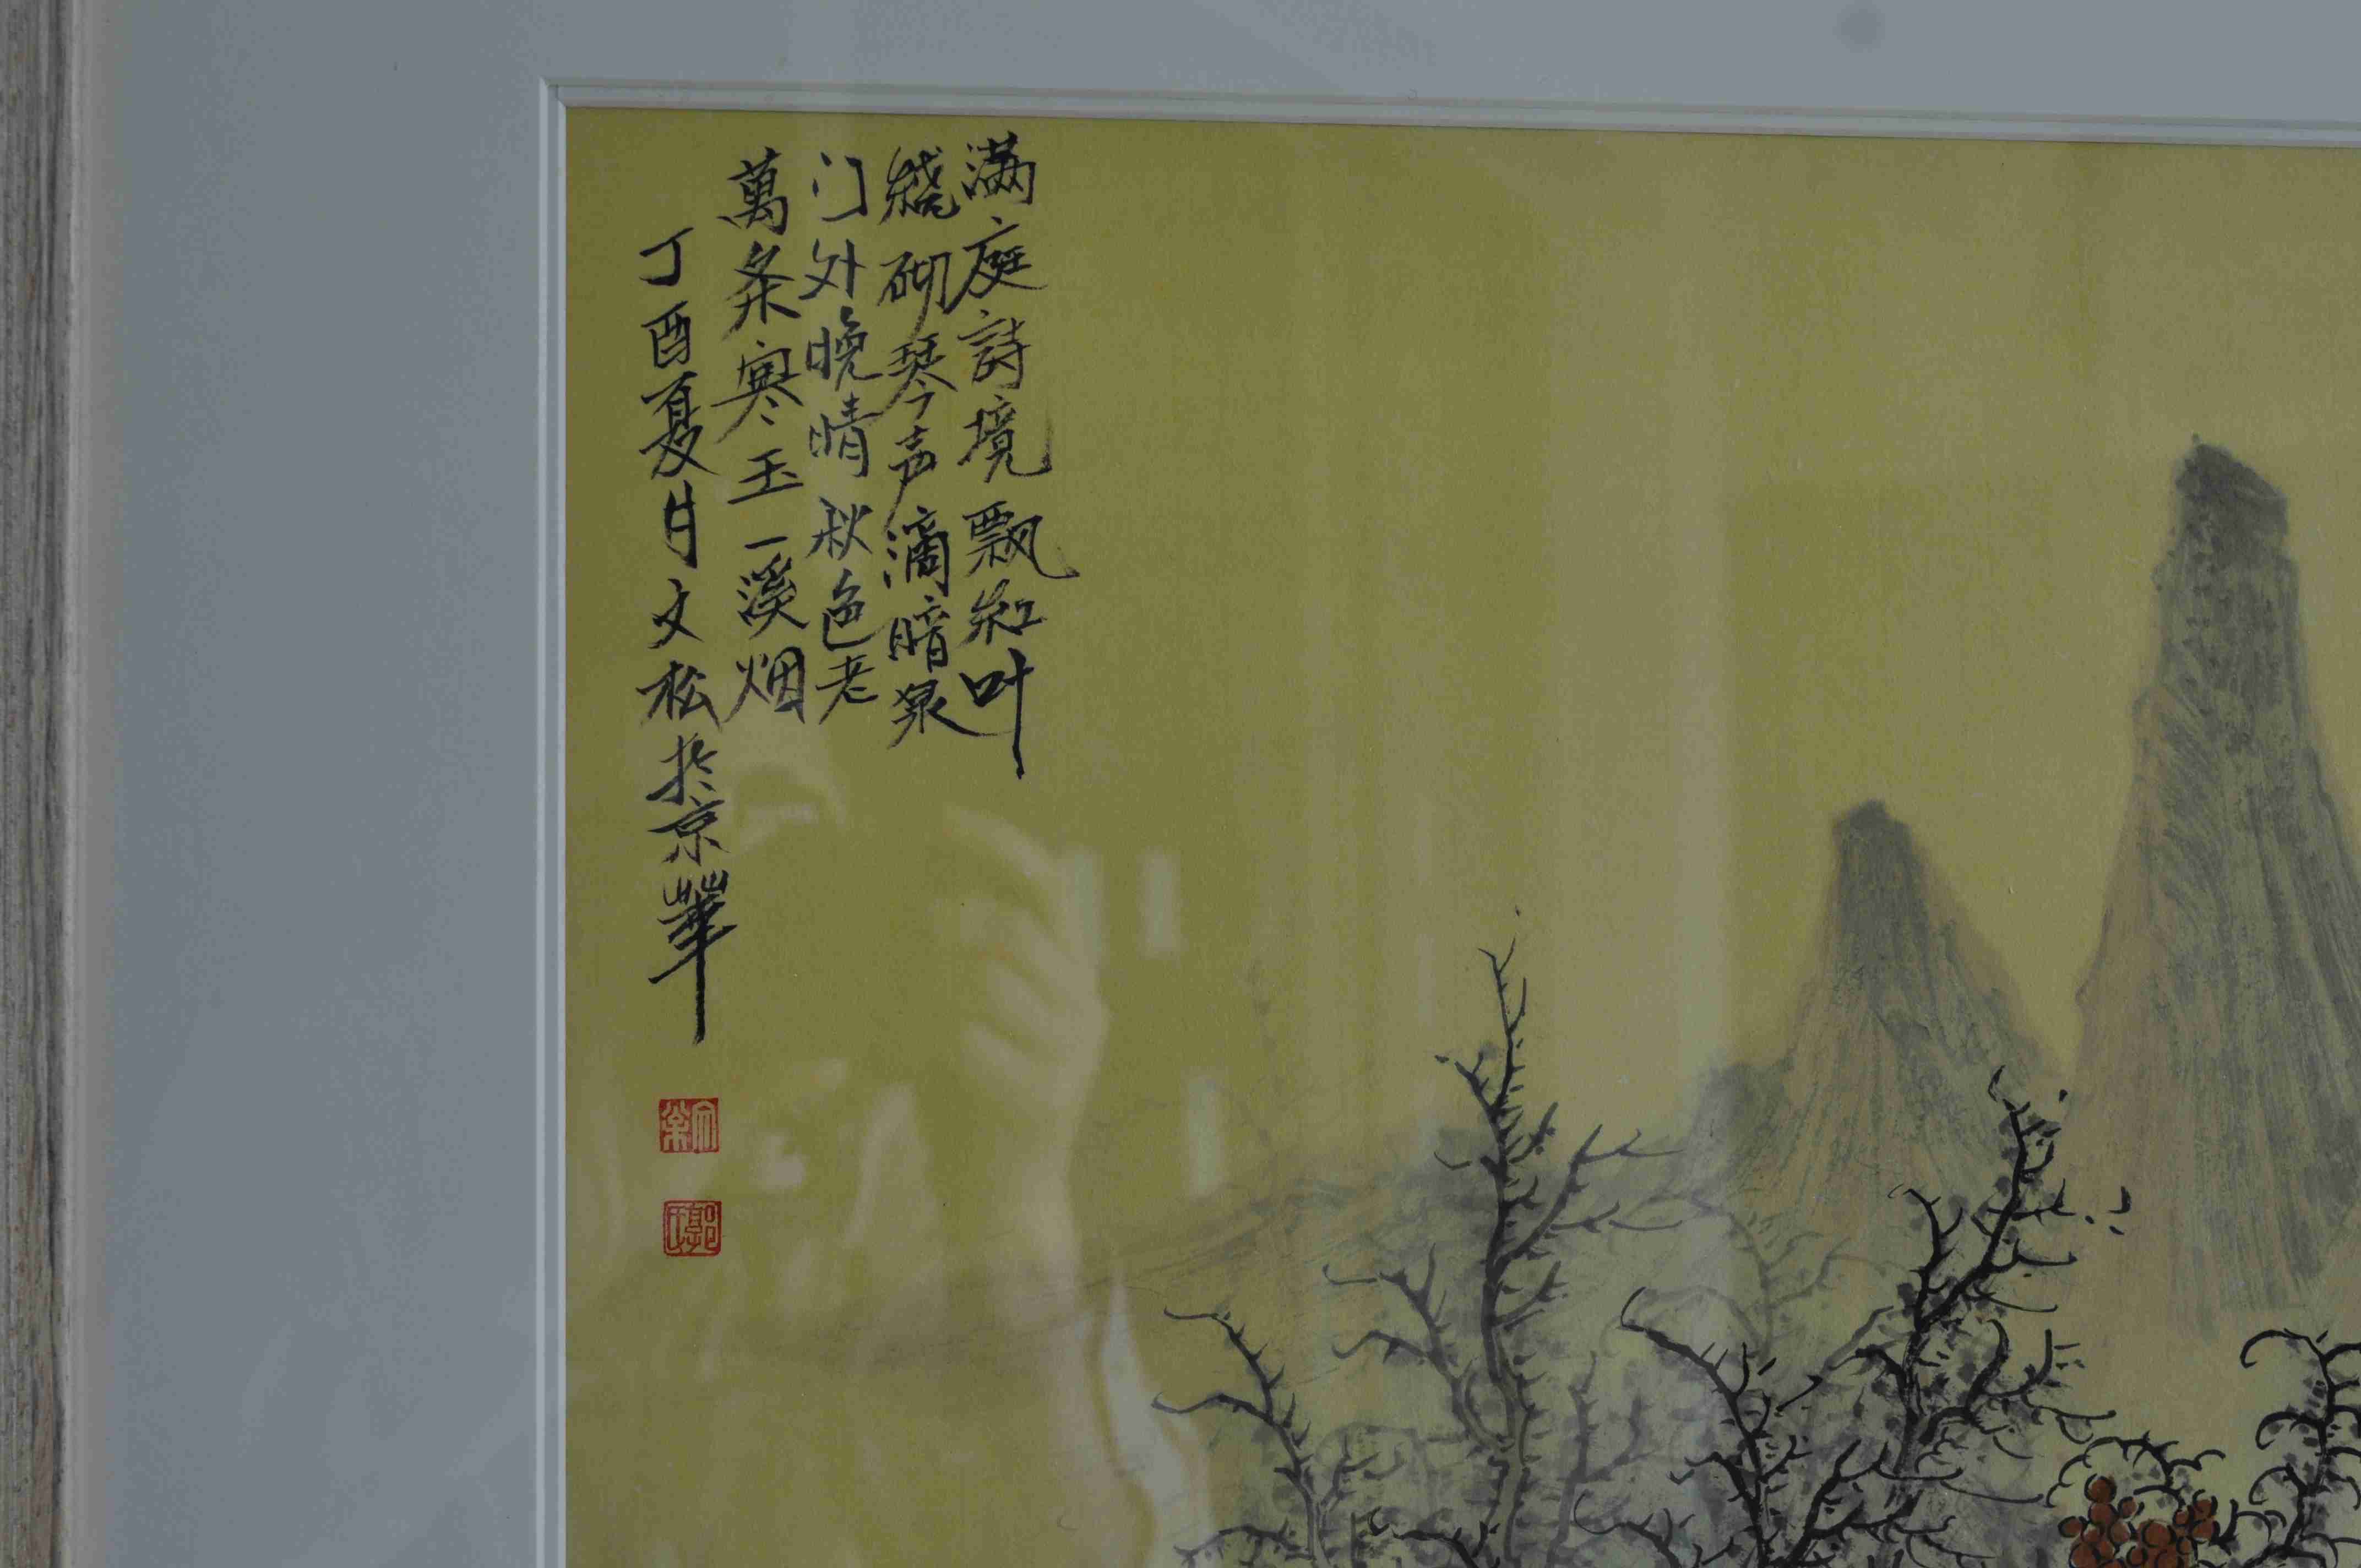 满庭詩境飘红叶
繞砌琴声滴暗泉
门外晚晴秋色老
萬条寒玉一溪烟
丁酉夏月文松於京華
郭氏